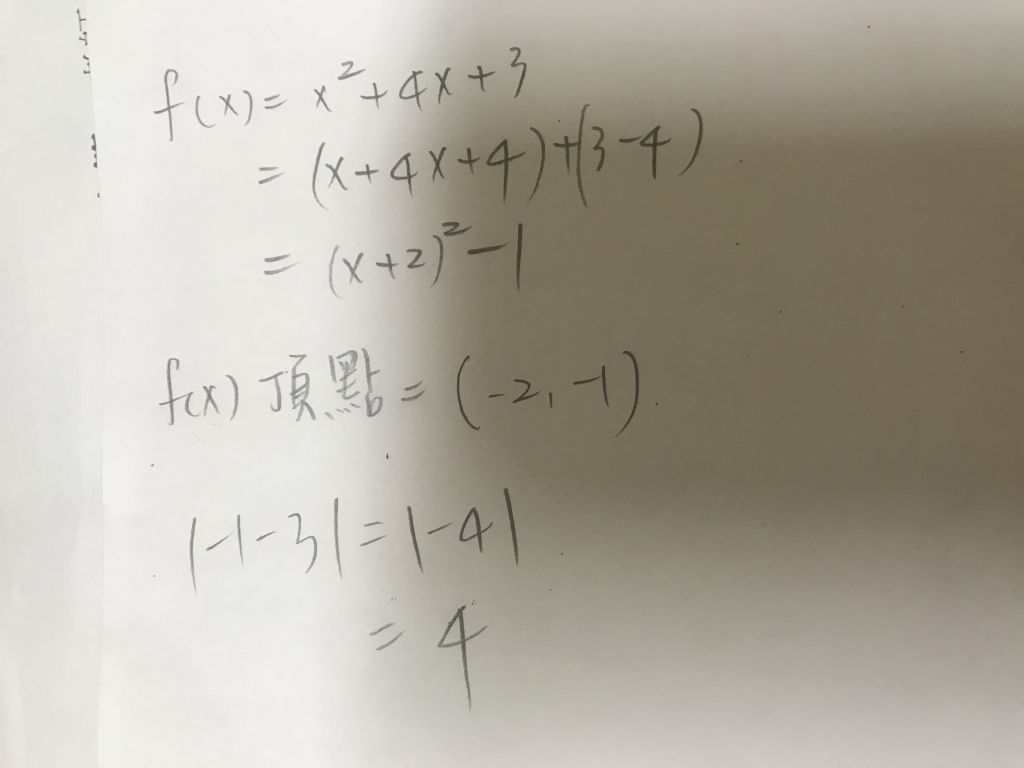 f(x) = x² + 4x + 3
= (x + 4x + 4) + (3 - 4)
= (x + 2)² - 1
f(x) 頂點 = (-2, -1).
|-1 - 3| = |-4|
= 4